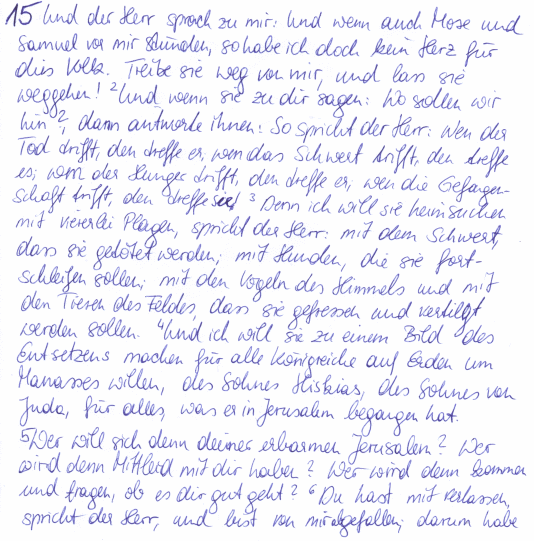 15 Und der Herr sprach zu mir: Und wenn auch Mose und
Samuel vor mir stünden, so habe ich doch kein Herz für
dies Volk. Treibe sie weg von mir, und lass sie
weggehen! ²Und wenn sie zu dir sagen: Wo sollen wir
hin?, dann antworte ihnen: So spricht der Herr: Wen der
Tod trifft, den treffe er; wen das Schwert trifft, den treffe
es; wen der Hunger trifft, den treffe er; wen die Gefangen-
schaft trifft, den treffe sie! ³Denn ich will sie heimsuchen
mit viererlei Plagen, spricht der Herr: mit dem Schwert,
dass sie getötet werden; mit Hunden, die sie fort-
schleifen sollen; mit den Vögeln des Himmels und mit
den Tieren des Feldes, dass sie gefressen und vertilgt
werden sollen. ⁴Und ich will sie zu einem Bild des
Entsetzens machen für alle Königreiche auf Erden um
Manasses willen, des Sohnes Hiskias, des Sohnes von
Juda, für alles, was er in Jerusalem begangen hat.
⁵Wer will sich denn deiner erbarmen Jerusalem? Wer
wird denn Mitleid mit dir haben? Wer wird denn kommen
und fragen, ob es dir gut geht? ⁶Du hast mit verlassen,
spricht der Herr, und bist von mir abgefallen; darum habe